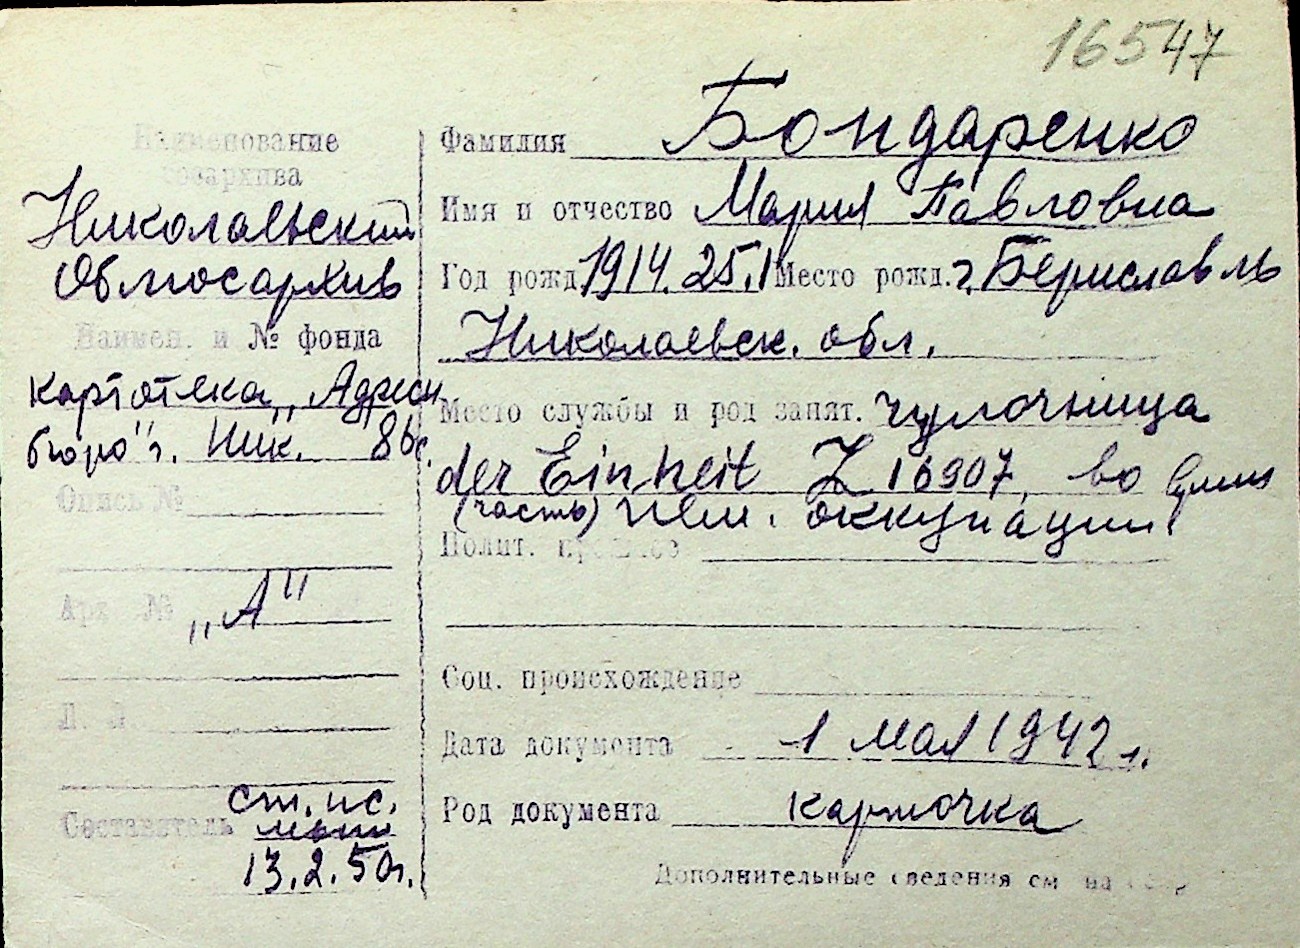 16547
Наименование
госархива
Николаевский
Облгосархив
Наимен. и № фонда
картотека „Адресн.
бюро" г. Ник.
Опись №
Арх. №
„А"
Л. Л.
Составитель
ст. н.с.
13.2.50г.
Фамилия Бондаренко
Имя и отчество Мария Павловна
Год рожд. 1914. 25.I Место рожд. г. Бериславль
Николаевск. обл.
Место службы и род занят. чулочница
der Einheit Z 16907, во время
(часть) нем. оккупации
Полит. прошлое
Соц. происхождение
Дата документа 1 мая 1942 г.
Род документа карточка
Дополнительные сведения см. на обор.